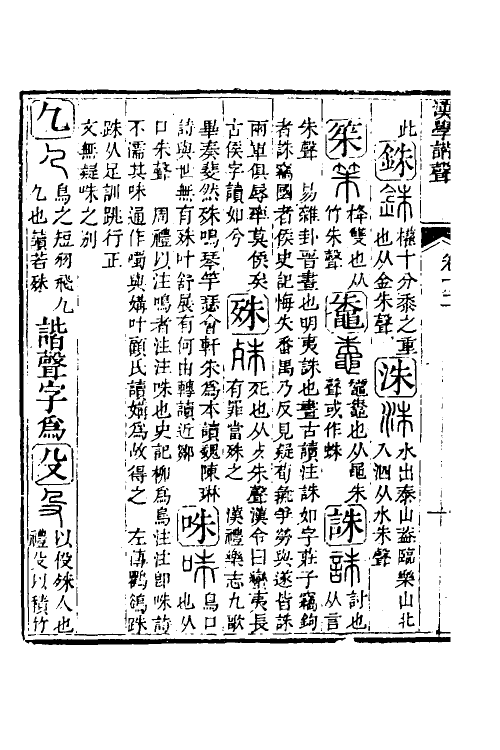 漢學諧聲
卷十二
十
此
銖 權十分黍之重也从金朱聲
洙 水出泰山蓋臨樂山北入泗从水朱聲
笨 栙雙也从竹朱聲
鼄 鼅鼄也从黽朱聲或作蛛
誅 討也从言
朱聲 易雜卦晉晝也明夷誅也晝古讀注誅如字莊子竊鉤
者誅竊國者侯史記悔失番禺乃反見疑荀彘爭勞與遂皆誅
兩軍俱辱軍莫侯矣
古侯字讀如今
殊 死也从歺朱聲漢令曰蠻夷長有罪當殊之 漢禮樂志九歌
畢奏斐然殊鳴琴竽瑟會軒朱爲本讀魏陳琳
詩與世無有殊叶舒展有何由轉讀近鄒
咮 鳥口也从
口朱聲 周禮以注鳴者注注咮也史記柳爲鳥注注卽咮詩
不濡其咮通作噣與媾叶顧氏讀媾爲故得之 左傳鸜鵒跦
跦从足訓跳行正
文無疑咮之別
𠘧 鳥之短羽飛𠘧𠘧也讀若殊
諧聲字爲
殳 以杸殊人也禮殳以積竹